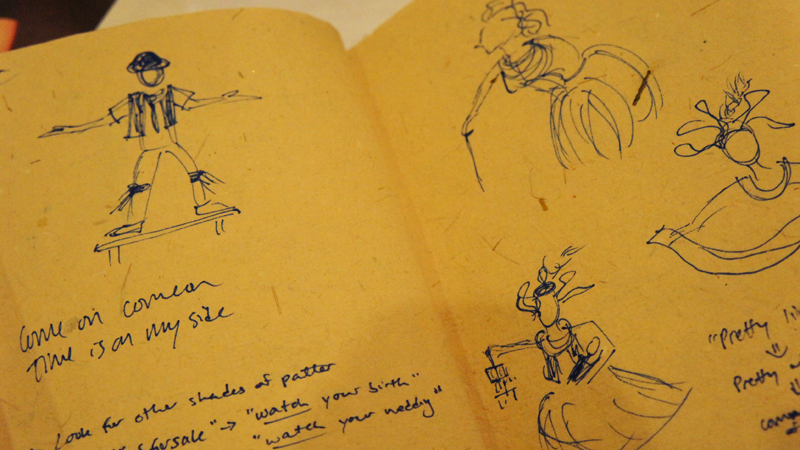 Come on comeon
Time is on my side
Look for other shades of patter
forsale" → "watch your birth"
"watch your
"Pretty
Pretty